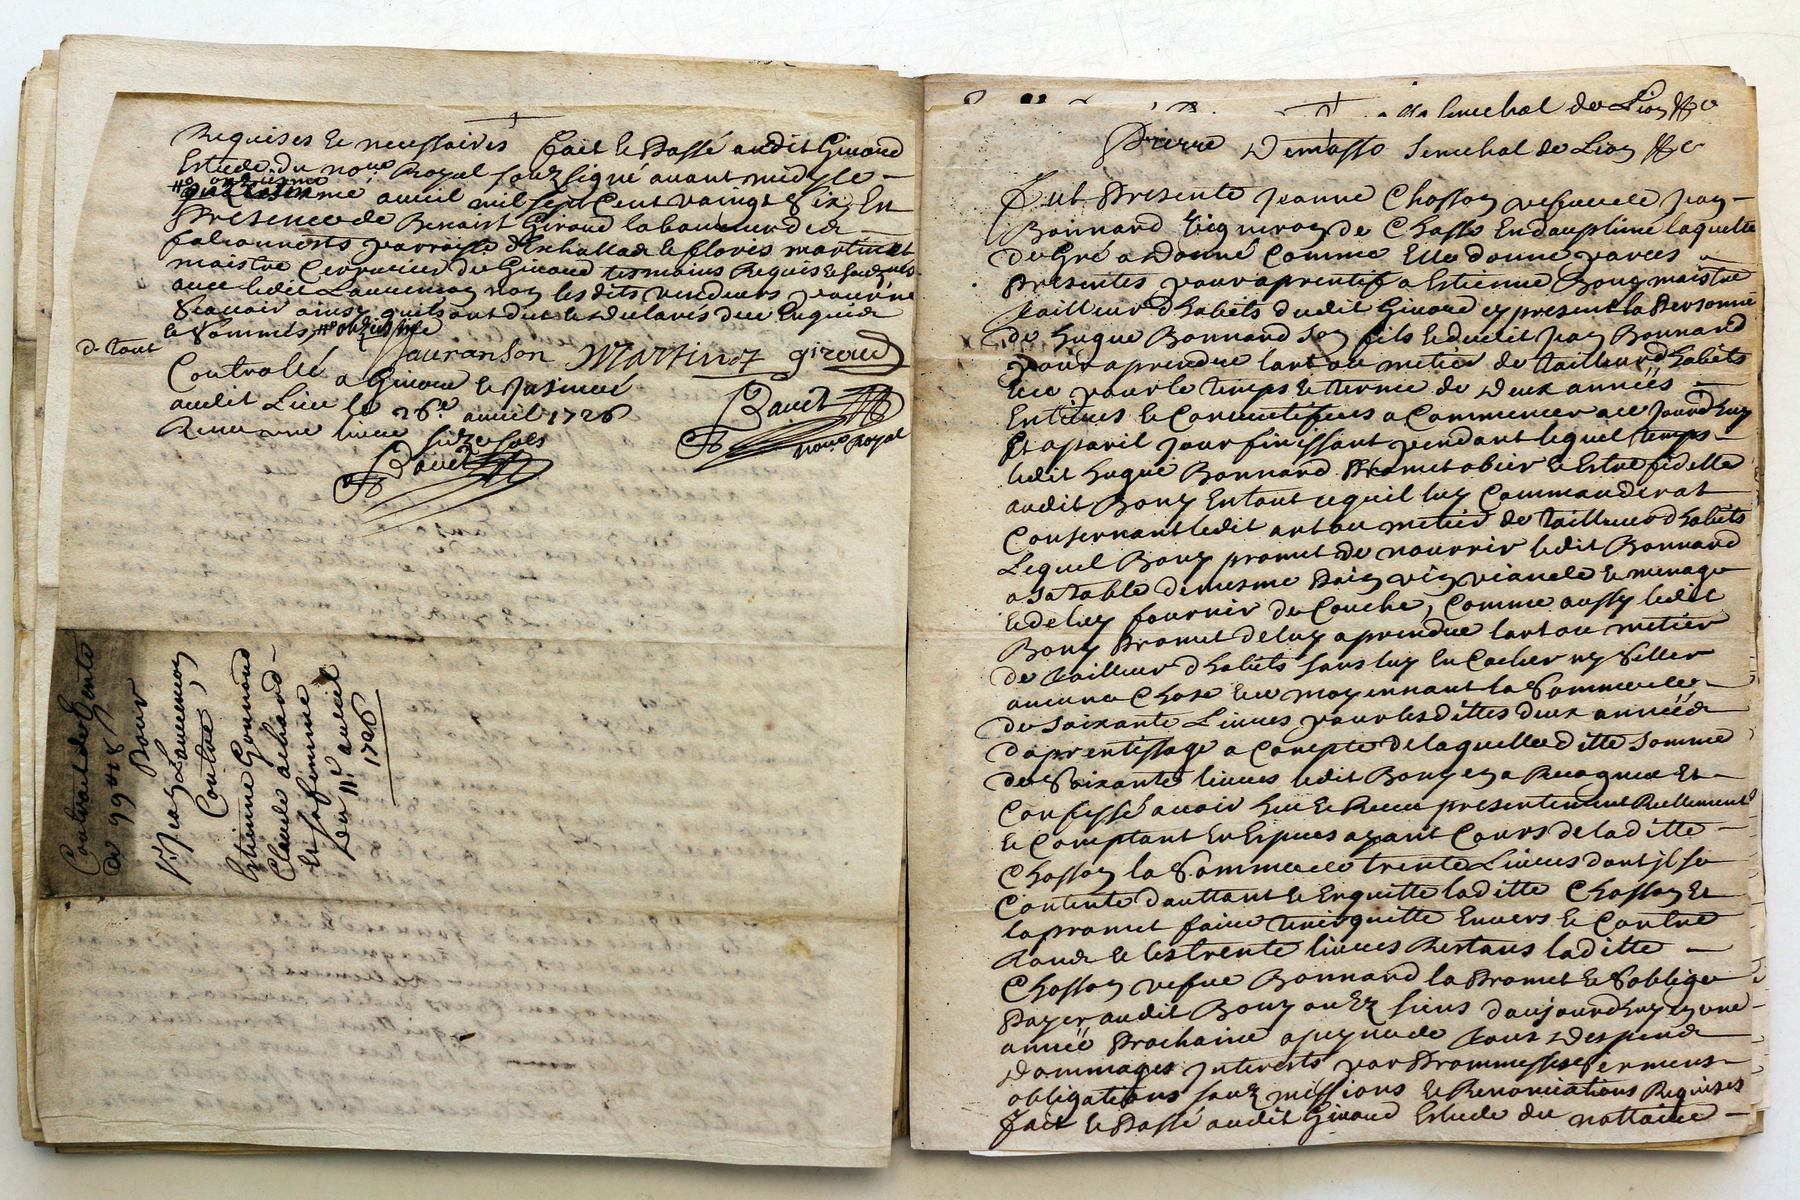 Requises et necessaires Fait et Passé audit Giraud
Estude du no.re Royal souz signé avant midy le
onzieme
avril mil sept cent vaingt Six, En
Presence de Benoist Giraud laboureur de
et Claves martinot
maistre Serrurier de Giraud tesmoins Requis
avec ledit non les dits vendeurs pour ne
Scavoir ainsy quils ont dit et declaré de ce Enquis
et Sommés onzieme
d. tout
Lauranson Martinot giroud
Controllé a Giraud et
audit Lieu le 26.e avril 1726
Receu une livre seize sols
Ravet
Ravet
no.re Royal
Contrat de Vente
de 99 ## 18 s
Pour
S.r Jean
Contre,
Estienne Gonnard
Claude achard
et sa femme
Du 11.e avril
1726
senechal de Lion &c
Pierre Demasso Senechal de Lion &c
Fut Presente Jeanne Chosson vefve de Jean
Bonnard Vigneron de Chasse En dauphiné laquelle
de Gré a Donné Comme Elle donne par ces
Presentes pour aprentif a Estienne Bony maistre
tailleur d'habits dudit Giraud cy present la Personne
de hugue Bonnard son fils et dudit Jean Bonnard
pour aprendre lart ou metier de tailleur d'habits
Ce pour le temps et terme de Deux années
Entieres et Consecutifves a Commencer ce Jourdhuy
Et a pareil jour finissant pendant lequel temps
ledit hugue Bonnard Promet obeir et Estre fidelle
audit Bony En tout ce quil luy Commanderat
Consernant ledit art ou metier de tailleur d'habits
Lequel Bony promet de nourrir ledit Bonnard
a sa table de mesme Pain vin viande et menage
et de luy fournir de Couche, Comme aussy ledit
Bony Promet de luy aprendre lart ou metier
de tailleur d'habits sans luy En Cacher ny Seller
aucune Chose Ce moyennant la Somme
de soixante Livres pour les dittes deux années
d'aprentissage a Compte de laquelle ditte somme
de Soixante livres ledit Bony en a Recognu Et
Confessé avoir heu et Receu presentement Reellement
et Comptant En Espices ayant Cours de la ditte
Chosson la Somme de trente Livres dont il se
Contente d'auttant et Enquitte laditte Chosson Et
la promet faire tenir quitte Envers et Contre
tous et les trente livres Restans laditte
Chosson vefve Bonnard la Promet et Soblige
Payer audit Bony ou Ez siens d'aujourdhuy en une
année Prochaine a peyne de tous Despend
Dommages Interests par Promesses Sermens
obligations souz missions et Renonciations Requises
Fait et Passé audit Giraud Estude du nottaire